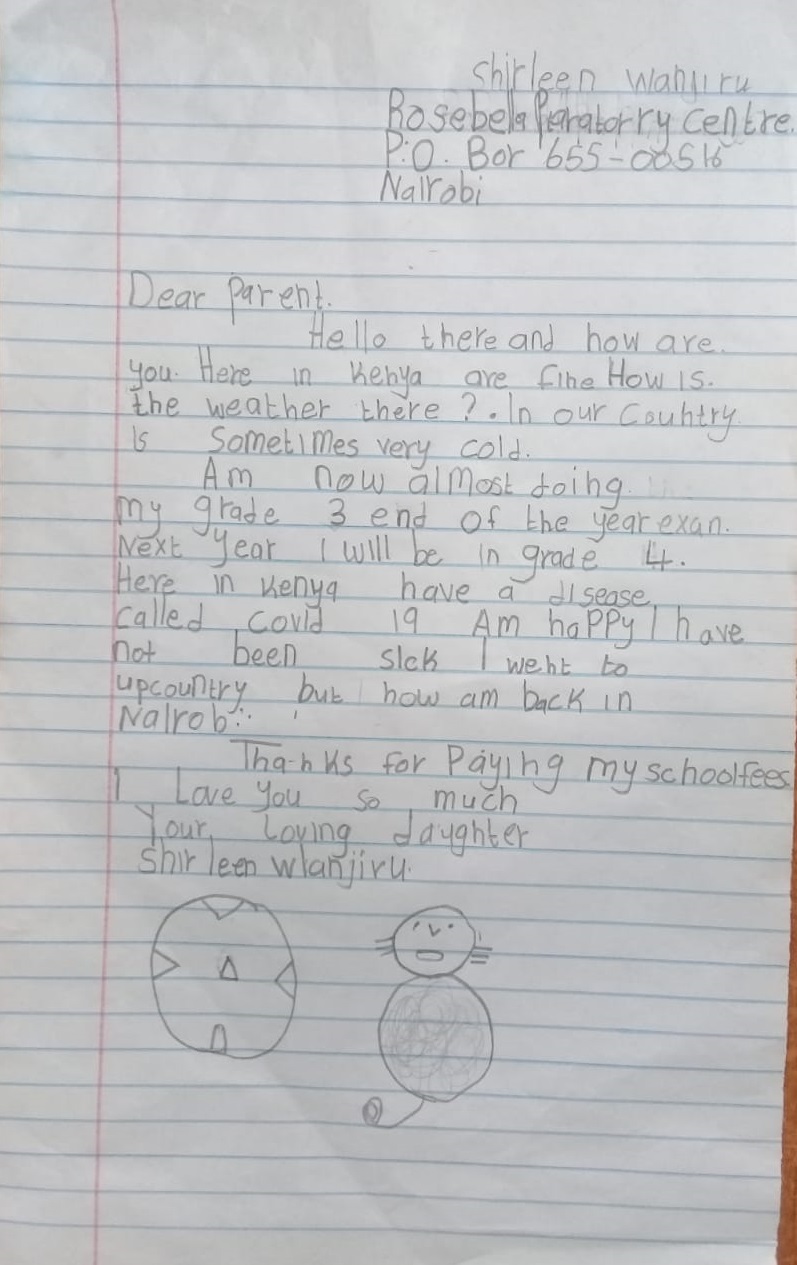 Shirleen Wanjiru
Rosebella Peratorry Centre.
P.O. Bor 655-00516
Nairobi
Dear Parent.
Hello there and how are.
you. Here in Kenya are fine How is.
the weather there ?. In our Country
is Sometimes very cold.
Am now almost doing.
my grade 3 end of the year exan.
Next Year I will be in grade 4.
Here in Kenya have a disease
called covid 19 Am happy I have
not been sick I went to
upcountry but now am back in
Nairobi.
Thanks for Paying my schoolfees
I Love You so much
Your Loving daughter
Shirleen wanjiru.